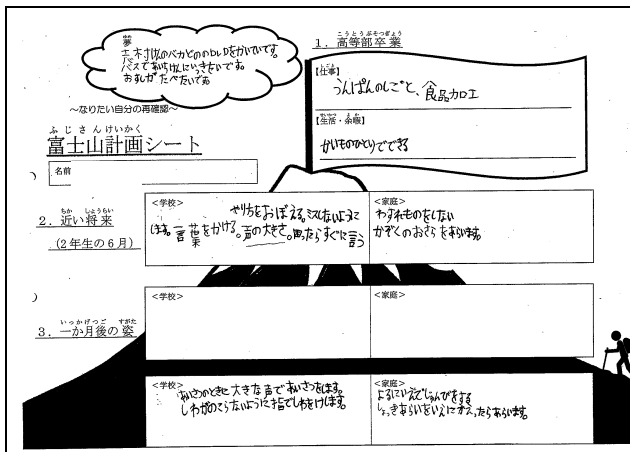 夢
エ木寸けんのバカどののDVDをかいたいです。
バスであいちけんにいきたいです。
おすしがたべたいです。
～なりたい自分の再確認～
ふじさんけいかく
富士山計画シート
名前
1．高等部卒業
こうとうぶそつぎょう
【仕事】
しごと
うんぱんのしごと、食品カロエ
【生活・余暇】
かいものひとりでできる
2．近い将来
ちか しょうらい
(2年生の6月)
<学校>
やり方をおぼえる。ミスしないように
します。言葉をかける。声の大きさ。困ったらすぐに言う
<家庭>
わすれものをしない
かぞくのおさらをあらいます。
いっかげつご すがた
3．一か月後の姿
<学校>
<家庭>
<学校>
あいさつのときに大きな声であいさつをします。
しわがのこらないように指でしわをけします。
<家庭>
よるにいえでじゅんびをする
しょっきあらいをいえにかえったらあらいます。